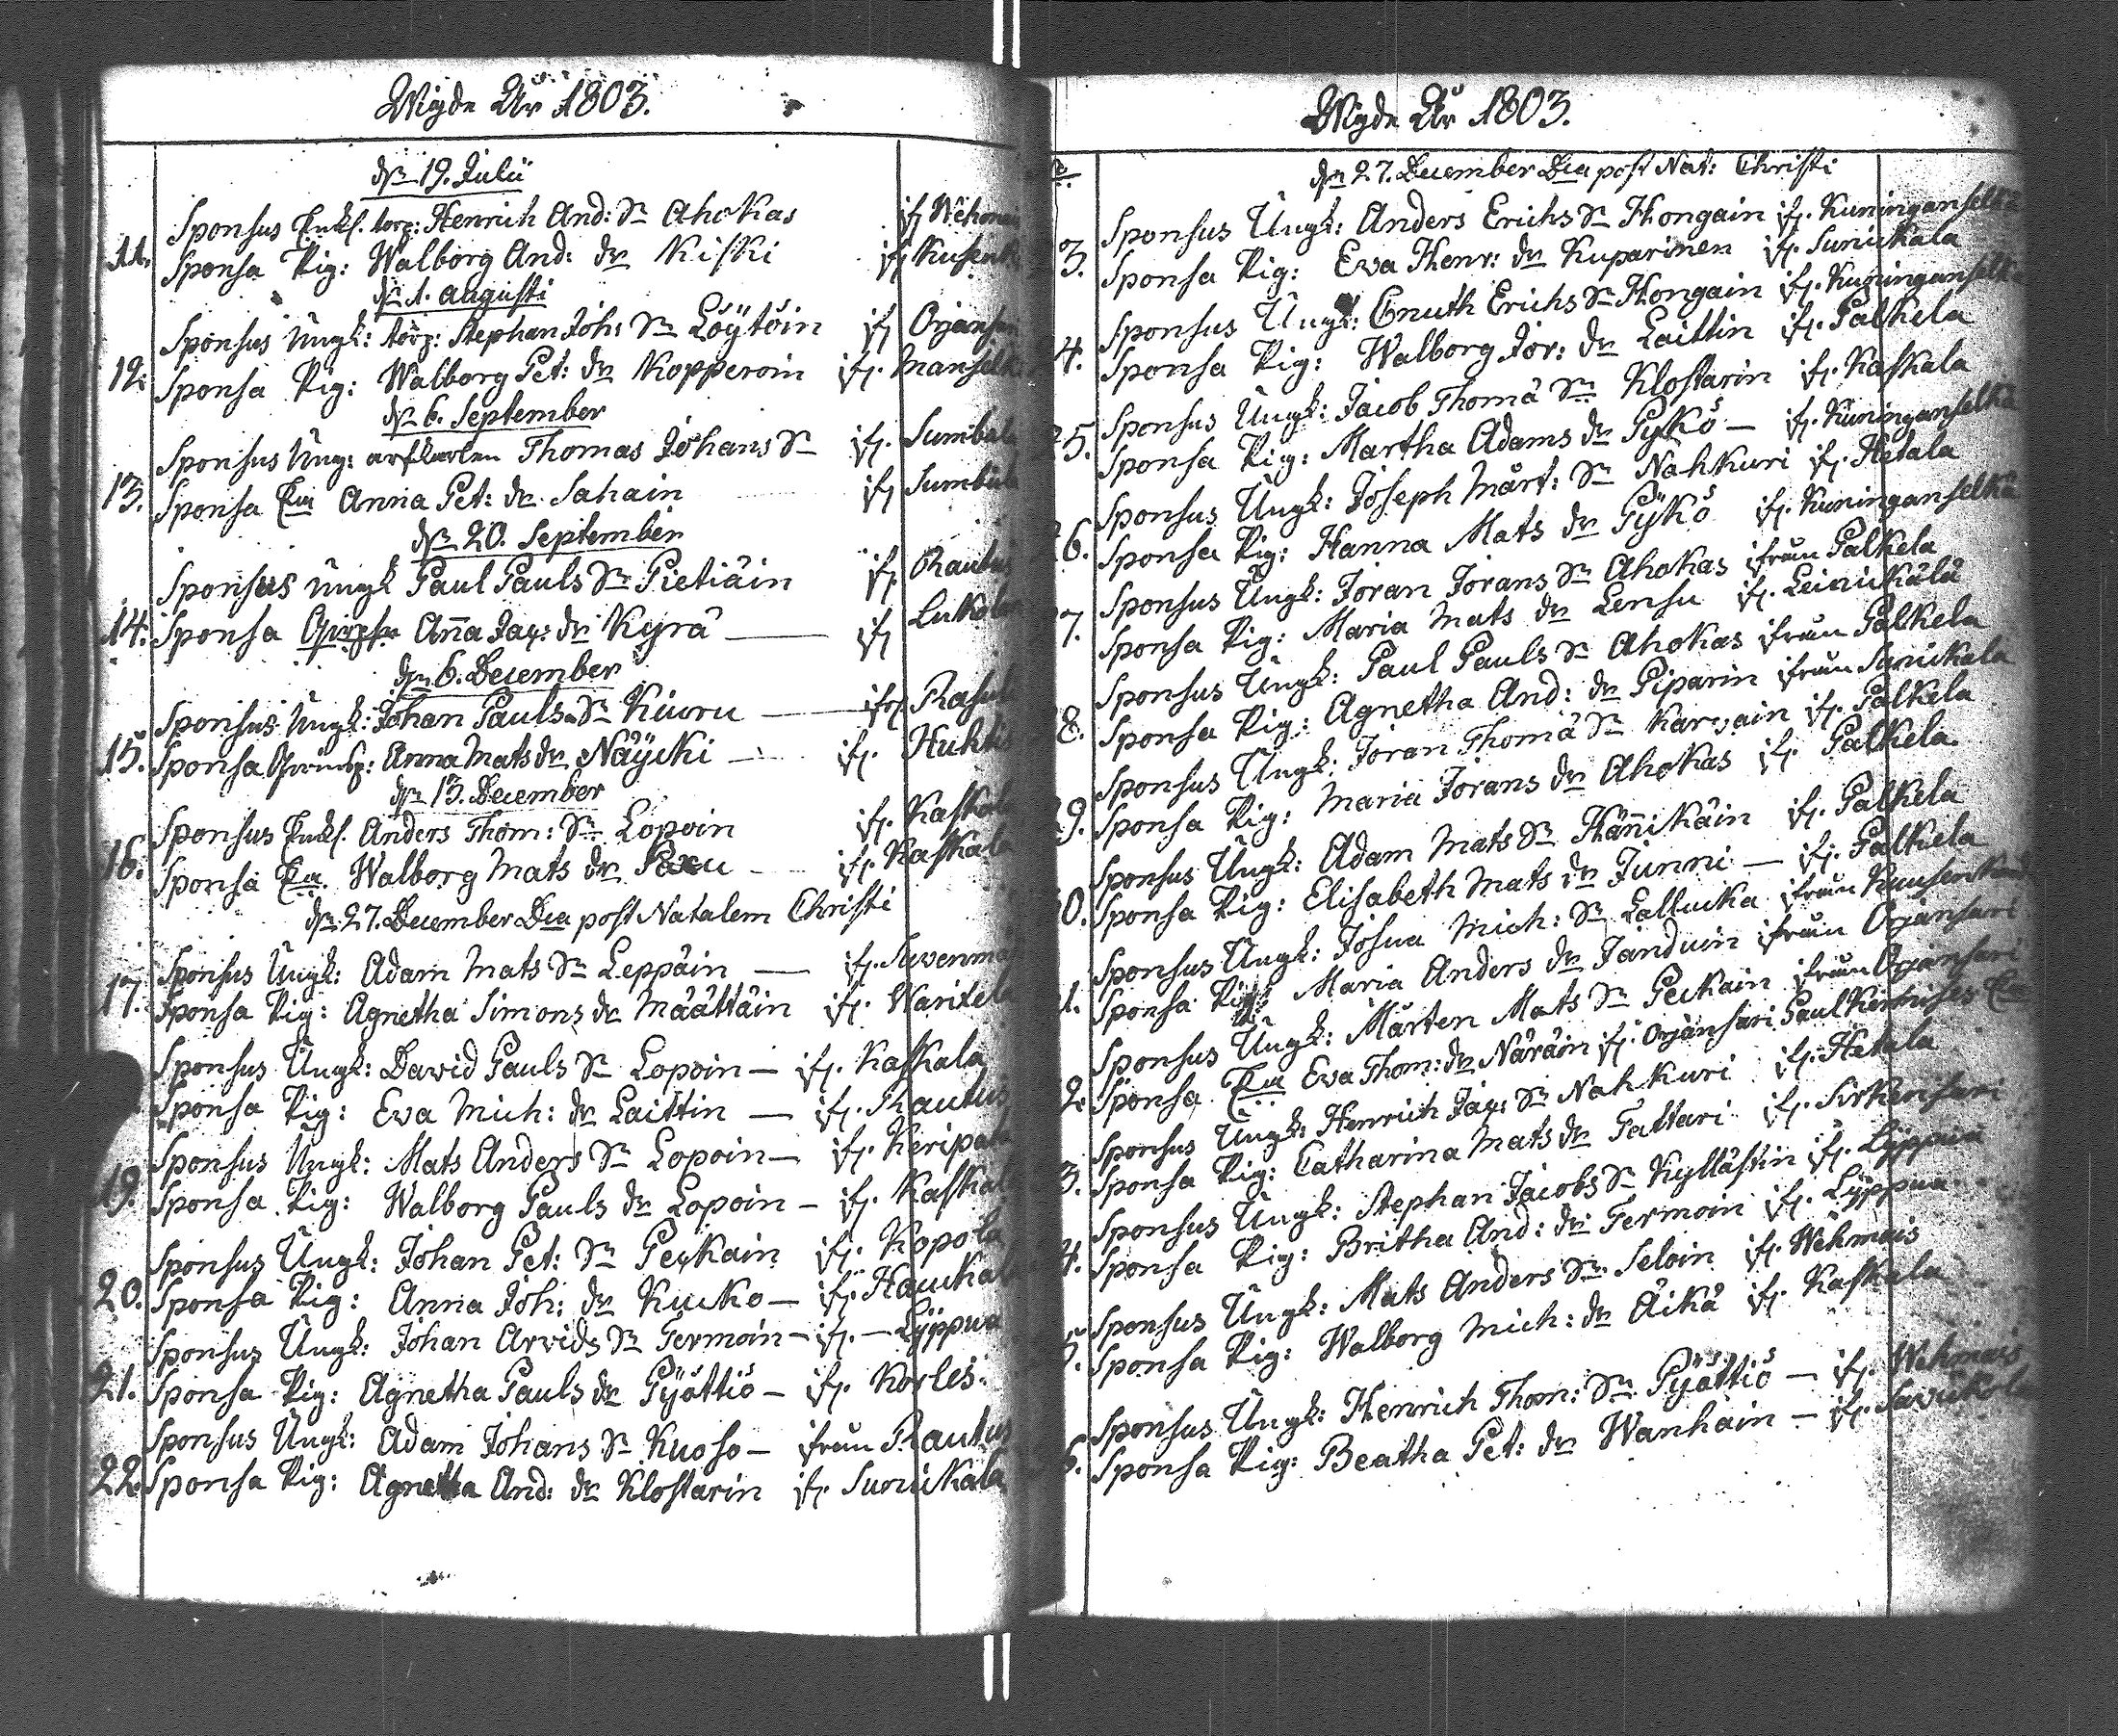 Wigde År 1803.
dn 19. Julii
Sponsus Enkl. torp: Henrich And: Sn Ahokas if Wehmais
11. Sponsa Pig: Walborg And: dr Kiski if Kusenk
dn 1. augusti
Sponsus Ungk: torp: Stephan Joh: Sn Löÿtöin if Orjansari
12. Sponsa Pig: Walborg Pet: dr Kopperoin if. Manselk
dn 6. September
Sponsus Ung: Thomas Johans Sn if. Sumbula
13. Sponsa Eia Anna Pet: dr Sahain if Sumbula
dn 20. September
Sponsus Ungk Paul Pauls Sn Pietiäin if Rautus
14. Sponsa Anna Jag: dr Kyrä if
dn 6. December
Sponsus Ungk: Johan Pauls Sn Kiuru if Rasu
15. Sponsa Anna Mats dr Näÿcki if. Huhti
dn 13. December
Sponsus Enkl. Anders Thom: Sn Lopoin if. Kaskala
16. Sponsa Ea. Walborg Mats dr Paxu if. Kaskala
dn 27. December Dia post Natalem Christi
Sponsus Ungk: Adam Mats Sn Leppäin if. Suvenmä
17. Sponsa Pig: Agnetha Simons dr Määttäin if. Warikela
Sponsus Ungk: David Pauls Sn Lopoin – if. Kaskala
Sponsa Pig: Eva Mich: dr Laittin – if. Rautus
Sponsus Ungk: Mats Anders Sn Lopoin – if. Keripata
19. Sponsa Pig: Walborg Pauls dr Lopoin – if. Kaskala
Sponsus Ungk: Johan Pet: Sn Peykain if. Kopola
20. Sponsa Pig: Anna Joh: dr Kucko – if. Hauckala
Sponsus Ungk: Johan Arvids Sn Termoin – if. – Lÿppua
21. Sponsa Pig: Agnetha Pauls dr Pÿöttiö – if. Korles.
Sponsus Ungk: Adam Johans Sn Kuoso – ifrån Rautus
22. Sponsa Pig: Agnetha And: dr Klostarin if. Surickala
Wigde År 1803.
dn 27. December Dia post Nat: Christi
Sponsus Ungk: Anders Erichs Sn Hongain if. Kuninganselkä
3. Sponsa Pig: Eva Henr: dr Kuparinen if. Surickala
Sponsus Ungk: Cnuth Erichs Sn Hongain if. Kuninganselkä
4. Sponsa Pig: Walborg Jör: dr Laittin if. Palkela
Sponsus Ungk: Jacob Thomä Sn Klostarin if. Kaskala
25. Sponsa Pig: Martha Adams dr Pÿkö – if. Kuninganselkä
Sponsus Ungk: Joseph Märt: Sn Nahkuri if. Hetala
26. Sponsa Pig: Hanna Mats dr Pÿkö if. Kuninganselkä
Sponsus Ungk: Jöran Jörans Sn Ahokas ifrån Palkela
7. Sponsa Pig: Maria Mats dr Lensu if. Leinickälä
Sponsus Ungk: Paul Pauls Sn Ahokas ifrån Palkela
8. Sponsa Pig: Agnetha And: dr Piparin ifrån Surickala
Sponsus Ungk: Jöran Thomä Sn Karvain if. Palkela
29. Sponsa Pig: Maria Jörans dr Ahokas if. Palkela.
Sponsus Ungk: Adam Mats Sn Hännikäin if. Palkela
0. Sponsa Pig: Elisabeth Mats dr Junni – if. Palkela
Sponsus Ungk: Josua Mich: Sn Lallucka ifrån
1. Sponsa Pig: Maria Anders dr Janduin ifrån Orjansari
Sponsus Ungk: Mårten Mats Sn Peckain ifrån Orjansari
2. Sponsa Eia Eva Thom: dr Näräin if. Orjansari Paul
Sponsus Ungk: Henrich Jag: Sn Nahkuri if. Hetala
3. Sponsa Pig: Catharina Mats dr Tattari if. Sirkensari
Sponsus Ungk: Stephan Jacobs Sn Kyllästin if. Lÿppua
4. Sponsa Pig: Britha And: dr Termoin if. Lÿppua
Sponsus Ungk: Mats Anders Sn Seloin if. Wehmais
5. Sponsa Pig: Walborg Mich: dr Äikä if. Kaskala
Sponsus Ungk: Henrich Thom: Sn Pÿöttiö – if. Wehmais
6. Sponsa Pig: Beatha Pet: dr Wanhain – if. Savickola